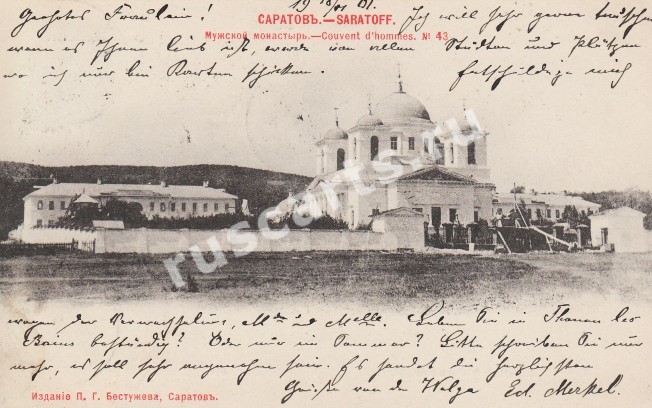 Geehrtes Fräulein! 19 18/VI 01. Ich will sehr gerne tauschen
САРАТОВЪ.—SARATOFF.
Мужской монастырь.—Couvent d'hommes. № 43
wenn es Ihnen lieb ist, werde von allen Städten und Plätzen
wo ich nur bin Karten schicken. Entschuldige mich
ruscards.ru
wegen der Verwechslung, Mde und Melle. Leben Sie in Thonon les
Bains beständig? Oder nur im Sommer? Bitte schreiben Sie nur
mehr, es soll sehr angenehm sein. Es sendet die herzlichsten
Grüße von der Wolga Ed. Merkel.
Изданіе П. Г. Бестужева, Саратовъ.